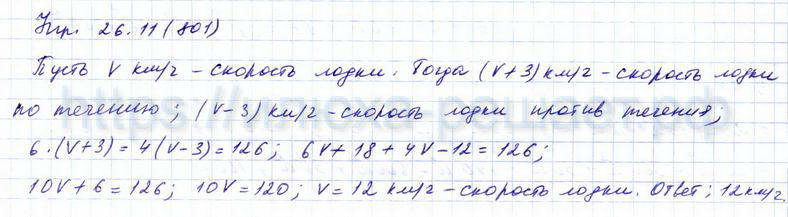 Упр. 26.11 (801)
Пусть V км/ч – скорость лодки. Тогда (V+3) км/ч – скорость лодки
по течению; (V–3) км/ч – скорость лодки против течения;
6·(V+3) = 4(V–3) = 126; 6V + 18 + 4V – 12 = 126;
10V + 6 = 126; 10V = 120; V = 12 км/ч – скорость лодки. Ответ; 12 км/ч.